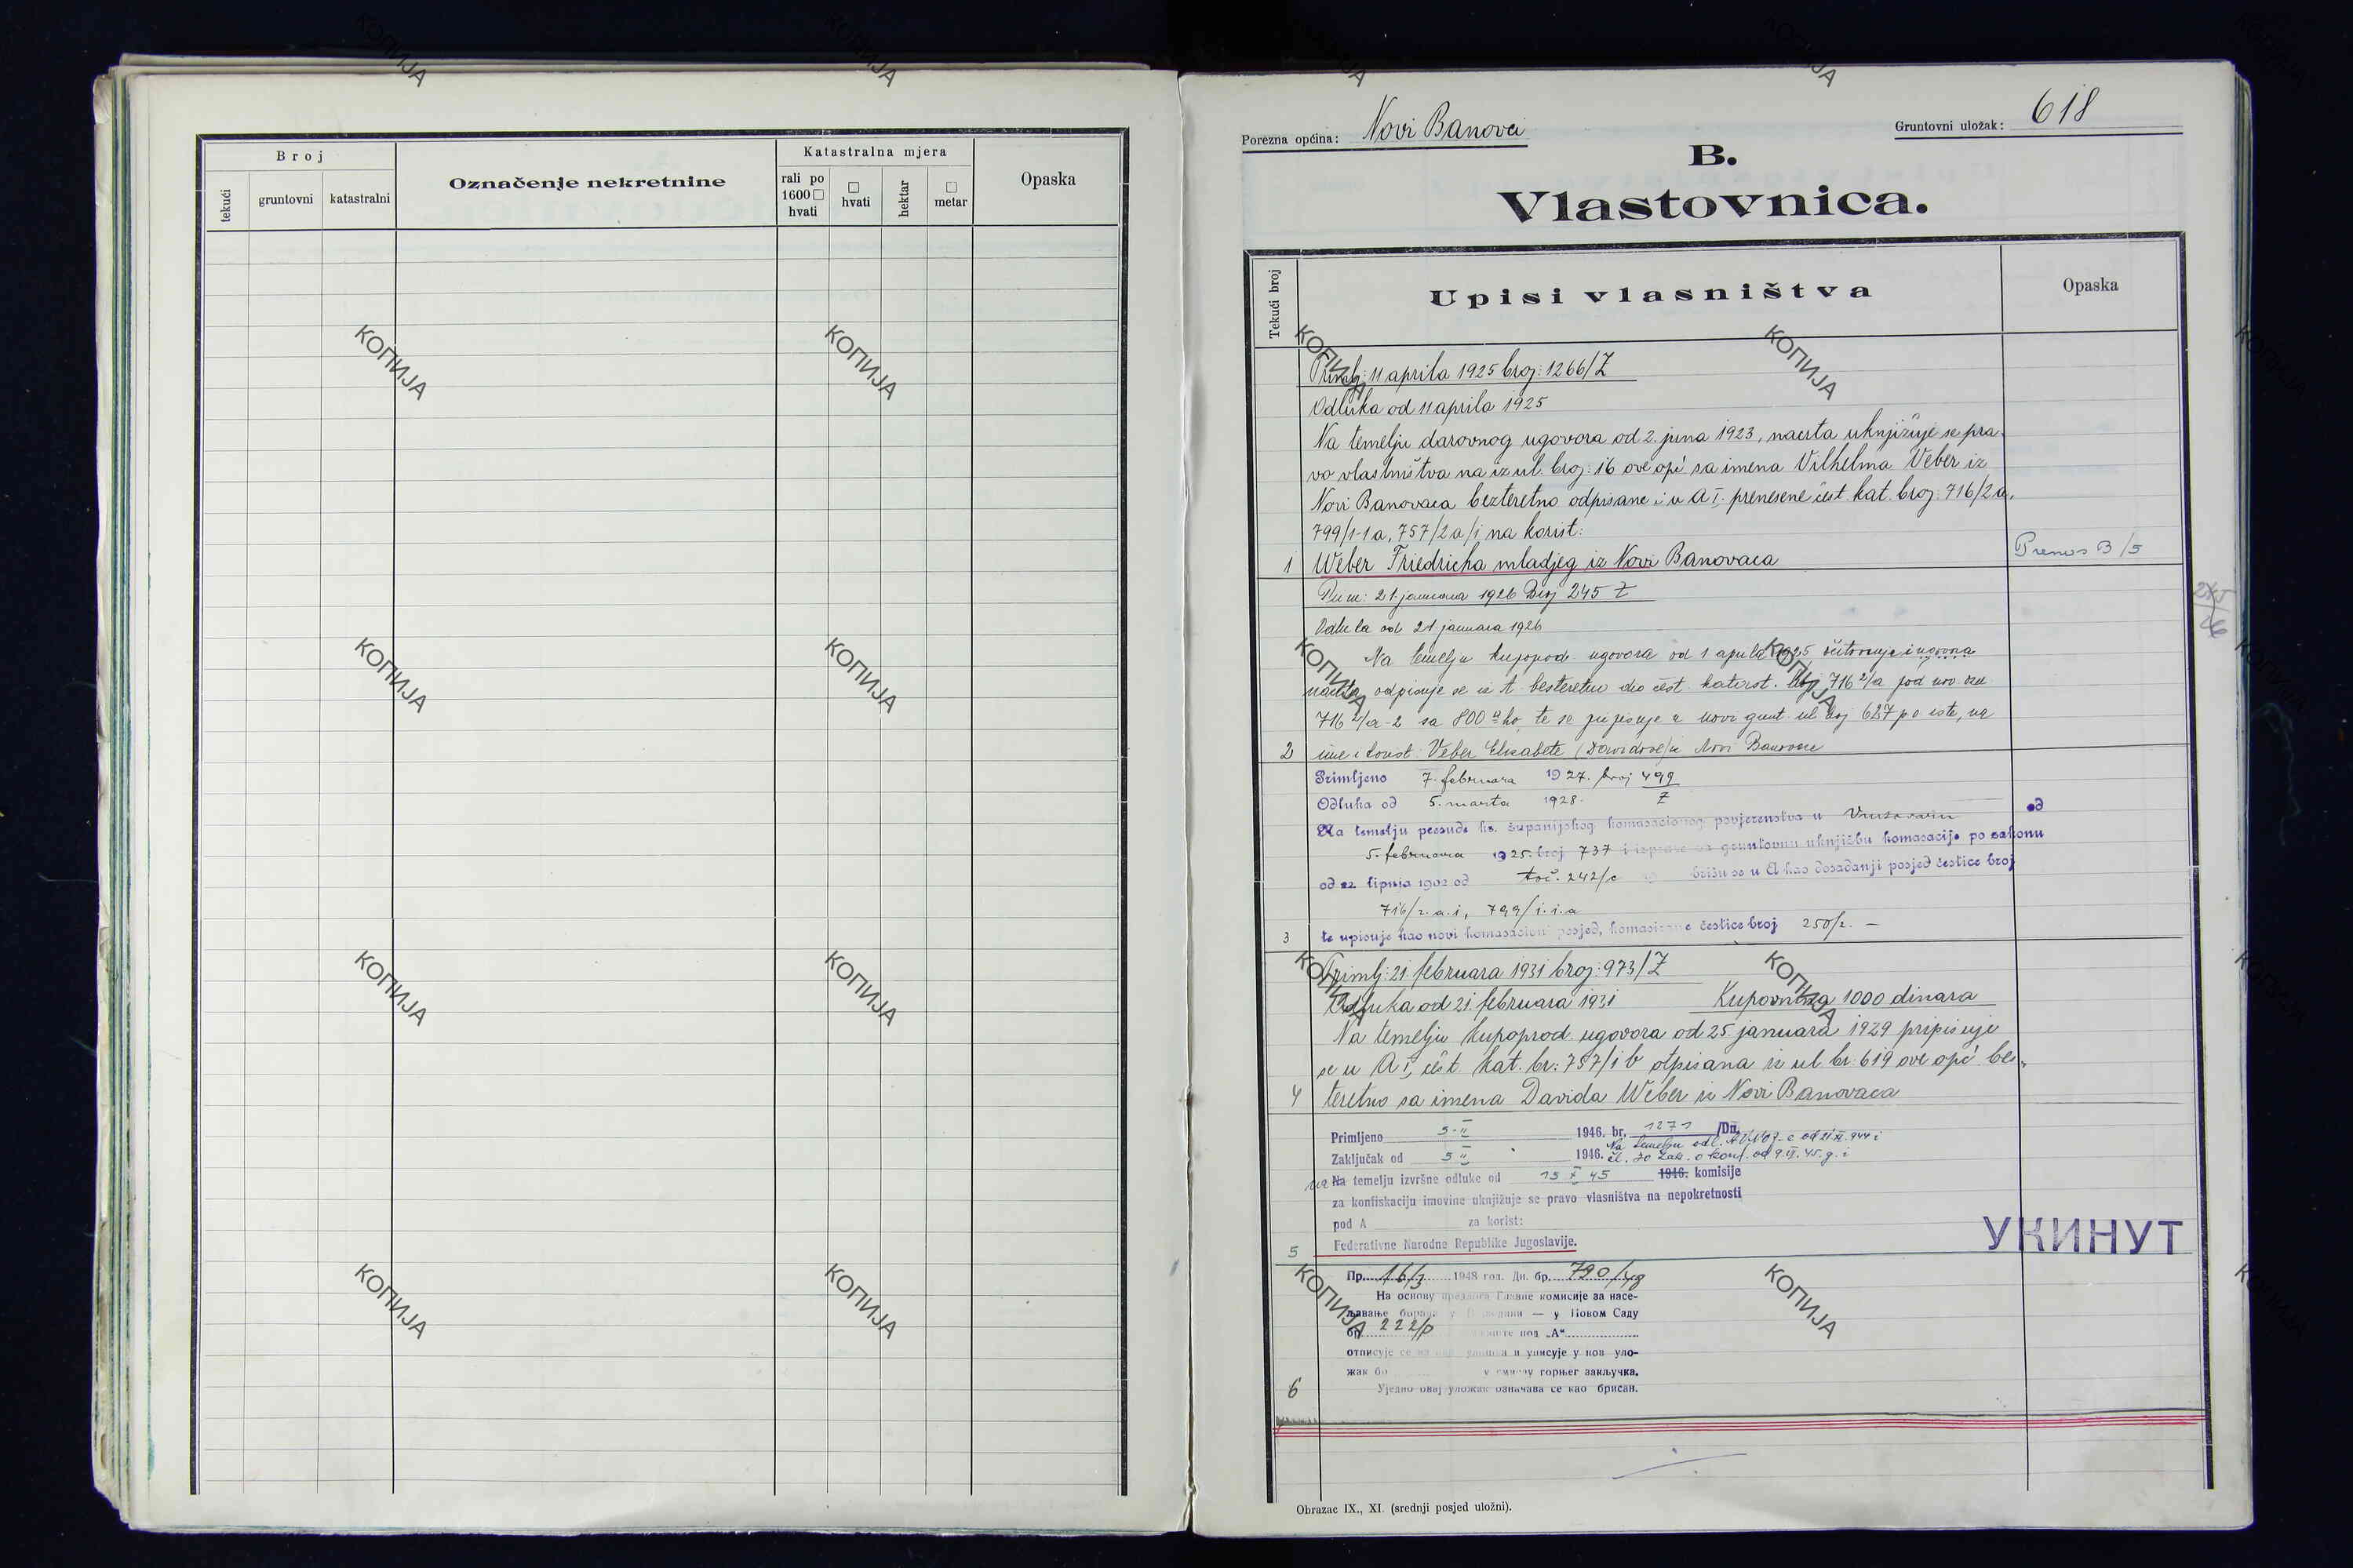 Broj
tekući
gruntovni
katastralni
Označenje nekretnine
Katastralna mjera
rali po 1600□ hvati
□ hvati
hektar
□ metar
Opaska
Porezna općina: Novi Banovci
Gruntovni uložak: 618
B.
Vlastovnica.
Tekući broj
Upisi vlasništva
Opaska
Primlj: 11 aprila 1925 broj: 1266/Z
Odluka od 11 aprila 1925
Na temelju darovnog ugovora od 2. juna 1923, nacrta uknjižuje se pra-
vo vlasništva na iz ul. broj: 16 ove opć sa imena Vilhelma Veber iz
Novi Banovaca bezteretno odpisane i u A I. prenesene čest. kat. broj: 716/2 a,
799/1-1a, 757/2a/1 na korist:
1 Weber Friedricha mladjeg iz Novi Banovaca
Prenos B/5
21. januara 1926 Broj 245 Z
Odluka od 21 januara 1926
Na temelju kupoprod. ugovora od 1 aprila 1925
nacrta odpisuje se iz A besteretno dio čest. katast. broj 716 2/a pod nov. br.
716 2/a-2 sa 800 te se pripisuje u novi grunt ul broj 627 po iste, na
2 ime i korist: Veber Elisabete (Davidove) iz Novi Banovci
Primljeno 7. februara 1927. broj 499
Z
Odluka od 5. marta 1928.
Na temelju presude kr. županijskog komasacionog povjerenstva u Vukovaru od
5. februara 1925. broj 737 i isprave za gruntovnu uknjižbu komasacije po zakonu
od 22. lipnja 1902. od toč. 242/c brišu se u A kao dosadanji posjed čestice broj
716/2.a.1, 799/1.1.a
3 te upisuje kao novi komasacioni posjed, komasirane čestice broj 250/2. —
Primlj: 21. februara 1931 broj: 973/Z
Odluka od 21. februara 1931 Kupovnina 1000 dinara
Na temelju kupoprod. ugovora od 25 januara 1929 pripisuje
se u A I, čest. kat. br: 757/1 b otpisana iz ul. br: 619 ove opć. bes-
4 teretno sa imena Davida Weber iz Novi Banovaca
Primljeno 5-II 1946. br. 1271 /Dn.
Na temelju odl. AVNOJ-a od 21 XI. 944 i
Zaključak od 5 II 1946. čl. 30 Zak. o konf. od 9.VI.45.g. i
na Na temelju izvršne odluke od 15 X 45 1946. komisije
za konfiskaciju imovine uknjižuje se pravo vlasništva na nepokretnosti
pod A za korist:
5 Federativne Narodne Republike Jugoslavije.
УКИНУТ
Пр. 16/3 1948 год. Дн. бр. 790/48
На основу предлога Главне комисије за насе-
љавање бораца у Војводини — у Новом Саду
бр. 222/р под „А“
отписује се из овог улошка и уписује у нов уло-
жак бр у смислу горњег закључка.
6 Уједно овај уложак означава се као брисан.
Obrazac IX., XI. (srednji posjed uložni).
КОПИЈА